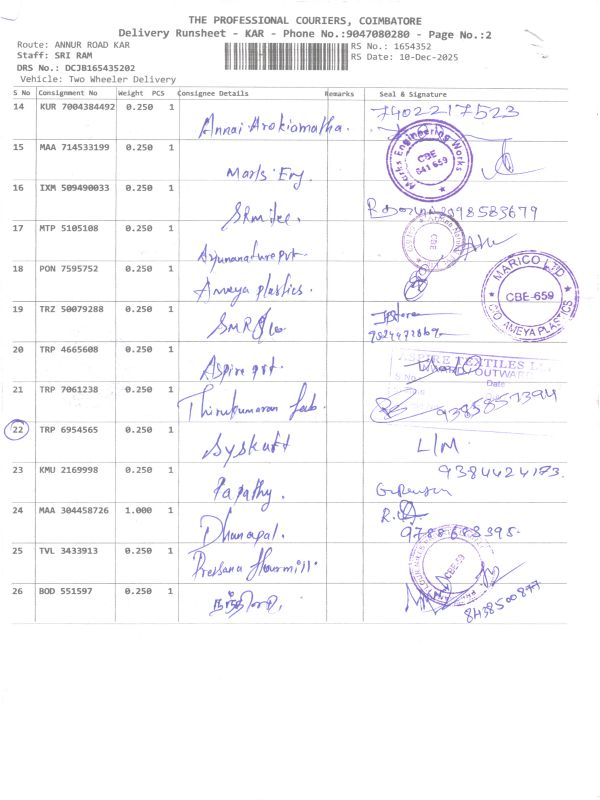 THE PROFESSIONAL COURIERS, COIMBATORE
Delivery Runsheet - KAR - Phone No.:9047080280 - Page No.:2
Route: ANNUR ROAD KAR RS No.: 1654352
Staff: SRI RAM RS Date: 10-Dec-2025
DRS No.: DCJB165435202
Vehicle: Two Wheeler Delivery
S No Consignment No Weight PCS Consignee Details Remarks Seal & Signature
14 KUR 7004384492 0.250 1 Annai Arokiamatha. 7402217523
15 MAA 714533199 0.250 1 Marks Eng. Marks Engineering Works CBE 641 659
16 IXM 509490033 0.250 1
17 MTP 5105108 0.250 1 Arjunanature pvt. CBE
18 PON 7595752 0.250 1 Ameya plastics. MARICO LTD CBE-659 C/O AMEYA PLASTICS
19 TRZ 50079288 0.250 1 SMR
20 TRP 4665608 0.250 1 Aspire pvt. ASPIRE TEXTILES INWARD/OUTWARD Date
21 TRP 7061238 0.250 1 Thirukumaran fab. 9385857394
22 TRP 6954565 0.250 1 Syskutt L/M
23 KMU 2169998 0.250 1 Papathy.
24 MAA 304458726 1.000 1 Dhanapal. 9788683395.
25 TVL 3433913 0.250 1 flourmill CBE-59
26 BOD 551597 0.250 1